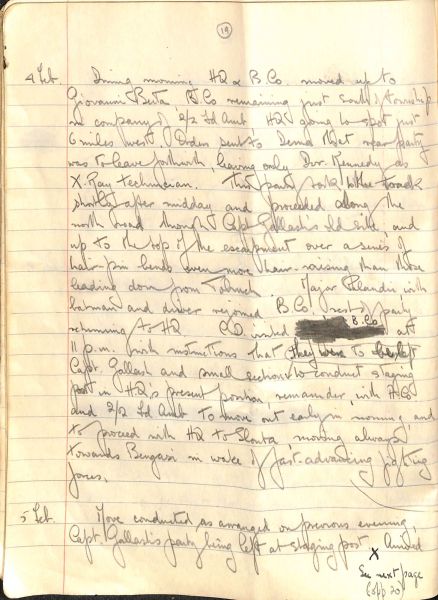 19
4 Feb. During morning HQ & B.Co. moved up to
Giovanni Berta, B.Co remaining just south of township
in company of 2/2 Fd Amb, HQ going to spot just
6 miles west. Orders sent to Derna that rear party
was to leave forthwith, leaving only Dvr. Kennedy as
X-Ray technician. This party took to the road
shortly after midday and proceeded along the
north road through Capt Gallash's old site, and
up to the top of the escarpment over a series of
hair-pin bends even more hair-raising than those
leading down from Tobruch. Major with
batman and driver rejoined B.Co, rest of party
returning to HQ. CO visited B.Co at
11 p.m. with instructions that they were to
Capt. Gallash and small section to conduct staging
post in HQ's present position, remainder with HQ
and 2/2 Fd Amb to move out early in morning and
to proceed with HQ to Slonta, moving always
towards Bengasi in wake of fast-advancing fighting
forces.
5 Feb. Move conducted as arranged on previous evening,
Capt. Gallash's party being left at staging post.
X
See next page
(opp 20)